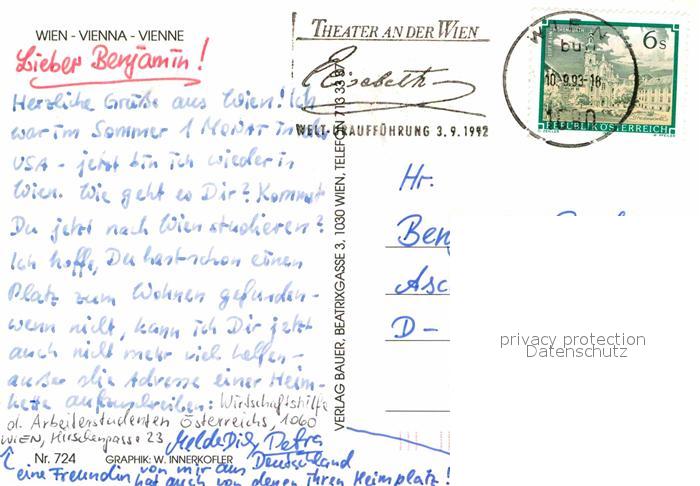 WIEN - VIENNA - VIENNE
Lieber Benjamin!
Herzliche Grüße aus Wien! Ich
war im Sommer 1 Monat in
USA - jetzt bin ich wieder in
Wien. Wie geht es Dir? Kommst
Du jetzt nach Wien studieren?
Ich hoffe, Du hast schon einen
Platz zum Wohnen gefunden -
wenn nicht, kann ich Dir jetzt
auch nicht mehr viel helfen -
außer die Adresse einer Heim-
kette aufzuschreiben: Wirtschaftshilfe
d. Arbeiterstudenten Österreichs, 1060
WIEN, Hirschengasse 23, Melde Dich Petra
Nr. 724 GRAPHIK: W. INNERKOFLER
eine Freundin von mir aus Deutschland
hat auch von denen ihren Heimplatz!
VERLAG BAUER, BEATRIXGASSE 3, 1030 WIEN, TELEFON 713 33 87
THEATER AN DER WIEN
Elisabeth
WELT-URAUFFÜHRUNG 3.9.1992
WIEN
10.-9.93-18
6s
REPUBLIK ÖSTERREICH
Hr.
Ben
Asc
D-
privacy protection
Datenschutz